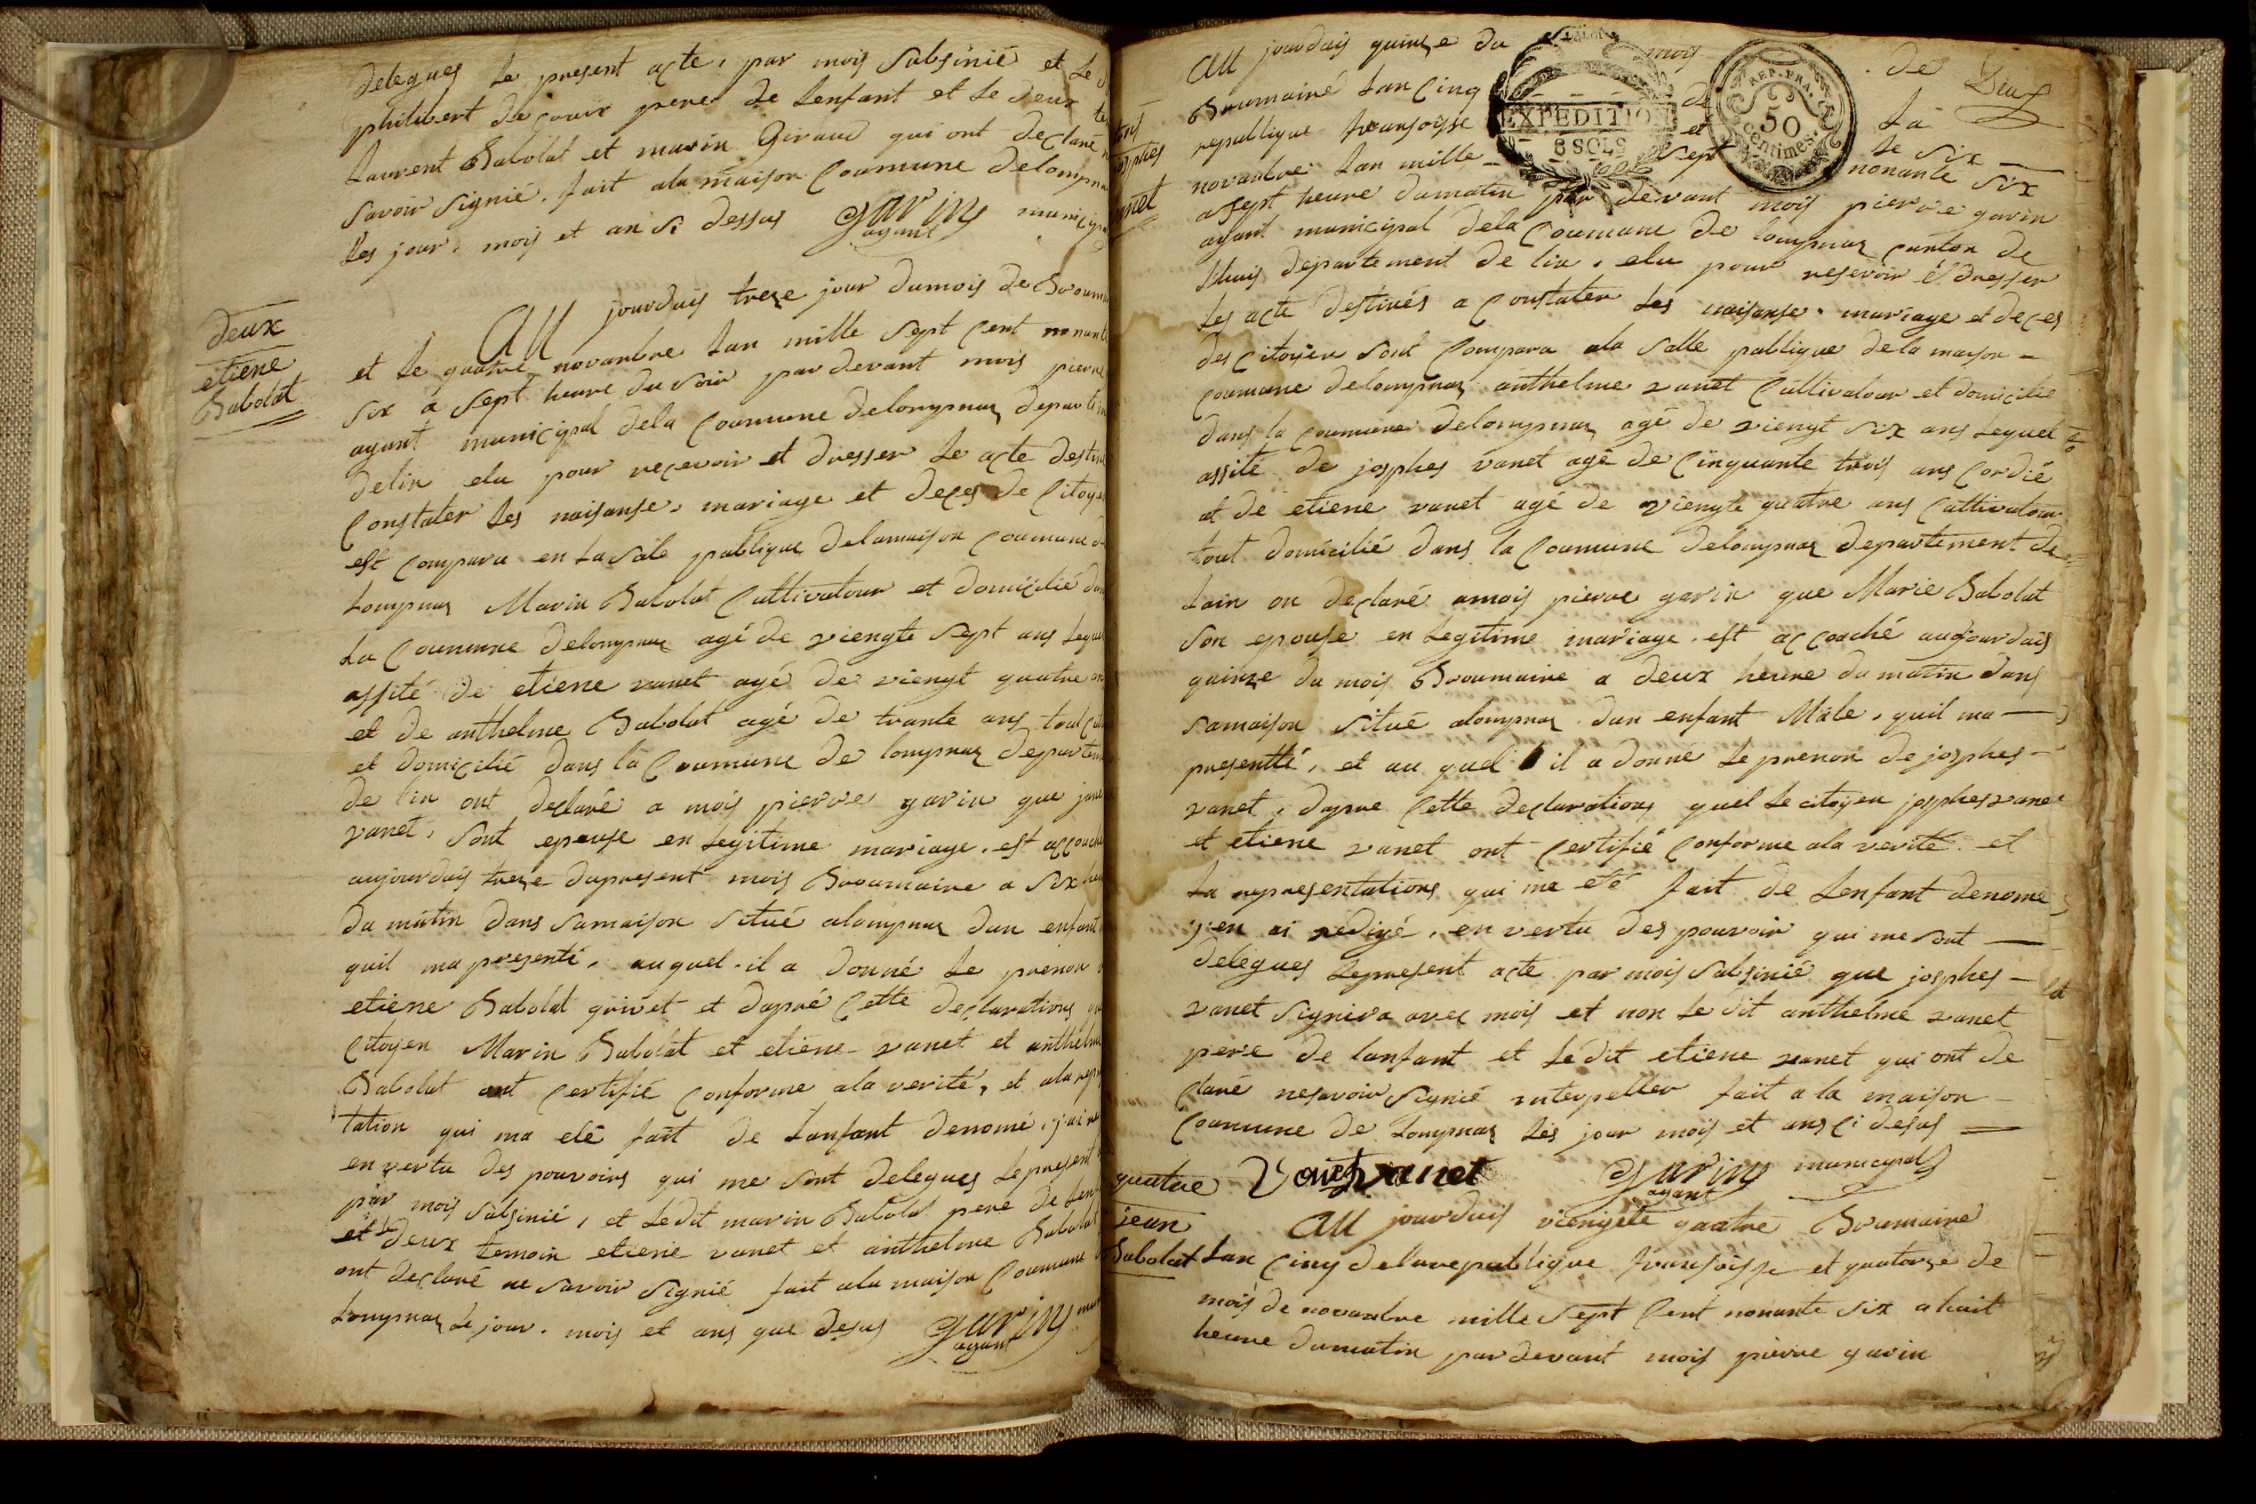 delegues le present acte, par mois subsinié et le
philibert dupour pere de lenfant et le deux te
laurent Babolat et marin Giraud qui ont declaré
savoir signié. fait ala maison Coumune delompnaz
les jour, mois et an si dessus garin municipal
agant
deux
etiene
Babolat
AU jourduis treze jour dumois de Broum
et le quatre novanbre lan mille sept Cent nonante
six a sept heure du soir par devant mois pierre
agant municipal dela Coumune delompnaz departem
delin elu pour recevoir et dresser le acte destiné
Constater les naisanse, mariage et deces de Citoyen
est Compara en la sale publique delamaison Coumune d
lompnaz Marin Babolat Cultivatour et domicilié dan
la Coumune delompnaz agé de viengte sept ans lequel
assité de etiene vanet agé de viengt quatre ans
et de anthelme Babolat agé de trante ans tout Cul
et domicilié dans la Coumune de lompnaz departem
de lin ont declaré a mois pierre garin que jane
vanet, sont epouse en legitime mariage. est accouché
aujourduis treze dupresent mois Broumaire a six heu
du matin dans samaison situé alompnaz dun enfant
quil ma presenté, auquel il a donné le prenon d
etiene Babolat grivet et dapré Cette declarations que
Citoyen Marin Babolat et etiene vanet et anthelme
Babolat ont Certifié Conforme ala verité, et ala repr
tation qui ma eté fait de lanfant denomé, jai re
en vertu des pouvoirs qui me sont delegues le present
par mois subsinié, et ledit marin Babolat peré de len
et le deux temoin etiene vanet et anthelme Babolat
ont declaré ne savoir signié fait ala maison Coumune
Lompnaz le jour. mois et ans que desus garin mun
agant
AU jourduis quinze du mois de
EXPEDITION
8 SOLS
REP. FRA.
50
centimes.
Broumairé lan Cinq de la
republique fransoisse et le six
novanbre lan mille sept nonante six
a sept heure dumatin par devant mois pierre garin
agant municipal dela Coumune de lompnaz canton de
lhuis departement de lin, elu pour reservoir et dresser
les acte destinés a Constater les naisanse. mariage et deces
des Citoyen sont Compara ala salle publique dela maison
Coumune delompnaz anthelme vanet Cultivatour et domicilie
dans la Coumune delompnaz agé de viengt six ans lequel
assité de josphes vanet agé de Cinquante trois ans Cordié
et de etiene vanet agé de viengte quatre ans Cultivatour
tout domicilié dans la Coumune delompnaz departement de
lain on declaré amois pierre garin que Marie Babolat
son epouse en legitime mariage. est accouché aujourduis
quinze du mois Broumaire a deux heure du matin dans
samaison situé alompnaz dun enfant Male, quil ma
presentté, et au quel il a donné le prenon de josphes
vanet, dapre Cette declarations quel le citoyen josphes vanet
et etiene vanet ont Certifié Conforme ala verité. et
la representations qui me eté fait de lenfant denome
j'en ai redigé, en vertu des pouvoir qui me sont
delegues lepresent acte par mois subsinié que josphes
vanet signira avec mois et non le dit anthelme vanet
pere de lanfant et le dit etiene vanet qui ont de
claré nesavoir signié interpeller fait a la maison
Coumune de Lompnaz les jour mois et ans Ci desus
vanet garin municipal
agant
quatre
jean
Babolat
AU jourduis viengte quatre Broumaire
lan Cinq delarepublique fransoisse et quatorze de
mois de novanbre mille sept Cent nonante six a huit
heure dumatin pardevant mois pierre garin